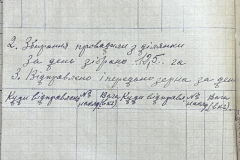 2. Збирання провадили з ділянки
За день зібрано 195. га
3. Відправлено і передано зерна за день
Куди відправлено № Вага Куди відправле № Вага